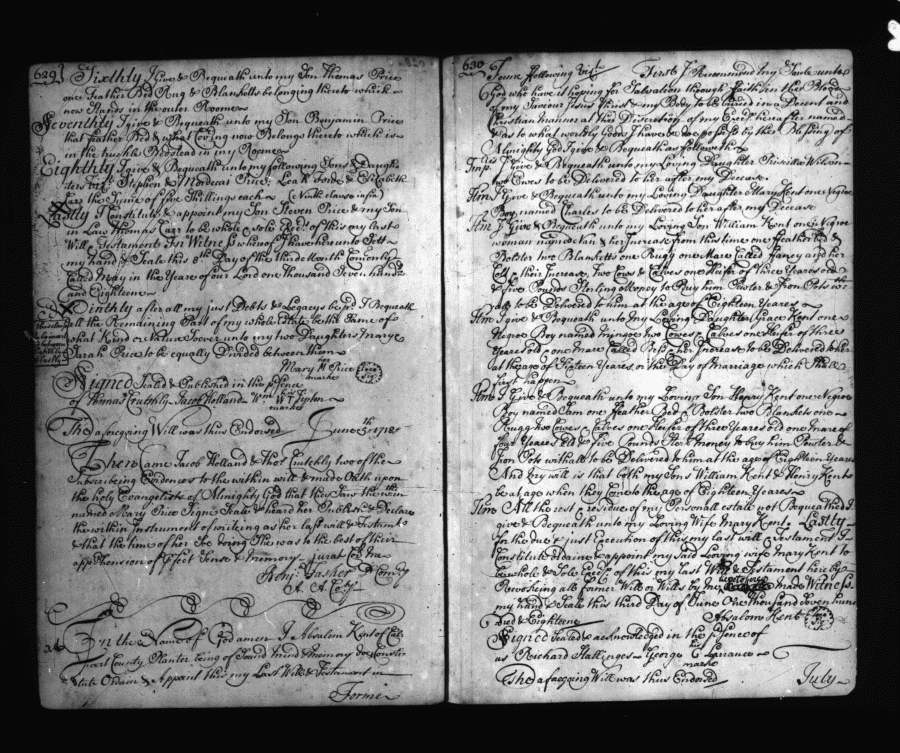 629
Sixthly I give & Bequeath unto my Son Thomas Price
one Feather Bed Rug & Blanketts belonging thereto which
now Stands in the outer Roome
Seventhly I give & Bequeath unto my Son Benjamin Price
that feather Bed & what Covring now Belongs thereto which is
in the truckle Bedstead in my Roome
Eighthly I give & Bequeath unto my following Sons & Daugh
ters viz: Stephen & Mordecai Price, Leah & Elizabeth
Carr the Summe of five Shillings each
Lastly I Constitute & appoint my Son Steven Price & my Son
in Law Thomas Carr to be whole & sole of this my last
Will & Testament In Witness whereof I have hereunto Sett
my hand & Seale this 8th Day of the third Month Comonly
called May in the Yeare of our Lord one thousand Seven hund
and Eighteene
Ninthly after all my just Debts & Legacys be pd I Bequeath
all the Remaining Part of my whole Estate be the Same of
what Kind or Nature Soever unto my two Daughters Mary
Sarah Price to be equally Divided between them
Mary M Price
marke
Signed Sealed & Published in the
of Thomas Crutchly Jacob Holland Wm W T Tipton
marke
The aforegoing Will was thus Endorsed June 1718
Then Came Jacob Holland & Thos Crutchly two of the
Subscribing Evidences to the within will & made Oath upon
the holy Evangelists of Almighty God that they Saw the within
named Mary Price Signe Seale & heard her Publish & Declare
the within Instrument of writeing as her last will & Testmt
& that the time of her Soe doing She was to the best of their
apprehension of Sense & memory jurat Cor me
Benj: Tasker
A. A. Coty
In the Name of God amen I Absalom Kent of Cal
County Planter being of Sound Mind & Memory doe Consti
tute Ordain & Appoint this my Last Will & Testament in
Forme
630
Forme Following Vizt First I Recommend my Soule unto
God who have it hoping for Salvation through Faith in the Blood
of my Saviour Jesus Christ & my Body to be buried in a Decent and
Christian Manner at the Discretion of my hereafter named
& as to what worldly Goods I have & doe possess by the Blessing of
Almighty God I give & Bequeath as followeth
I give & Bequeath unto my Loving Daughter Priscilla Wilson
two Ewes to be Delivered to her after my Decease
Itm I give & Bequeath unto my Loving Daughter Mary Kent one Negroe
Boy named Charles to be Delivered to her after my Decease
Itm I give & Bequeath unto my Loving Son William Kent one Negroe
woman named & her Increase from this time one Feather Bed &
Bolster two Blanketts one Rugg one Mare Called Fancy and her
Colt & their Increase, two Cows & Calves one Heifer of three Yeares old
& five Pounds Sterling Money to Buy him Pewter & Iron Pots wi
all to be Delivered to him at the age of Eighteen Yeares
Itm I give & Bequeath unto my Loving Daughter Grace Kent one
Negroe Boy named two Cowes & Calves one Heifer of three
Yeares old one Mare Called Bess & her Increase to be Delivered to her
at the age of Sixteen Yeares or the Day of Marriage which Shall
first happen
Itm I Give & Bequeath unto my Loving Son Henry Kent one Negroe
Boy named Sam one Feather Bed & Bolster two Blanketts one
Rugg two Cowes & Calves one Heifer of three Yeares old one Mare of
four Yeares Old & five Pounds Ster: Money to buy him Pewter &
Iron Pots with all to be Delivered to him at the age of Eighteen Yeares
And my will is that both my Sons William Kent & Henry Kent
be at age when they Come to the age of Eighteen Yeares
Itm All the rest & residue of my Personall estate not Bequeathed I
give & Bequeath unto my Loving Wife Mary Kent. Lastly
for the due & just Execution of this my last will & Testament I
Constitute ordaine & appoint my said Loving wife Mary Kent to
be whole & Sole of this my last Will & Testament hereby
Revoking all former Will or Wills by me heretofore made Witness
my hand & Seale this third Day of June One thousand Seven hun
dred & Eighteene
Absalom Kent
Signed Sealed & acknowledged in the of
us Richard Stallinges George Lawrance
marke
The aforegoing Will was thus Endorsed
July